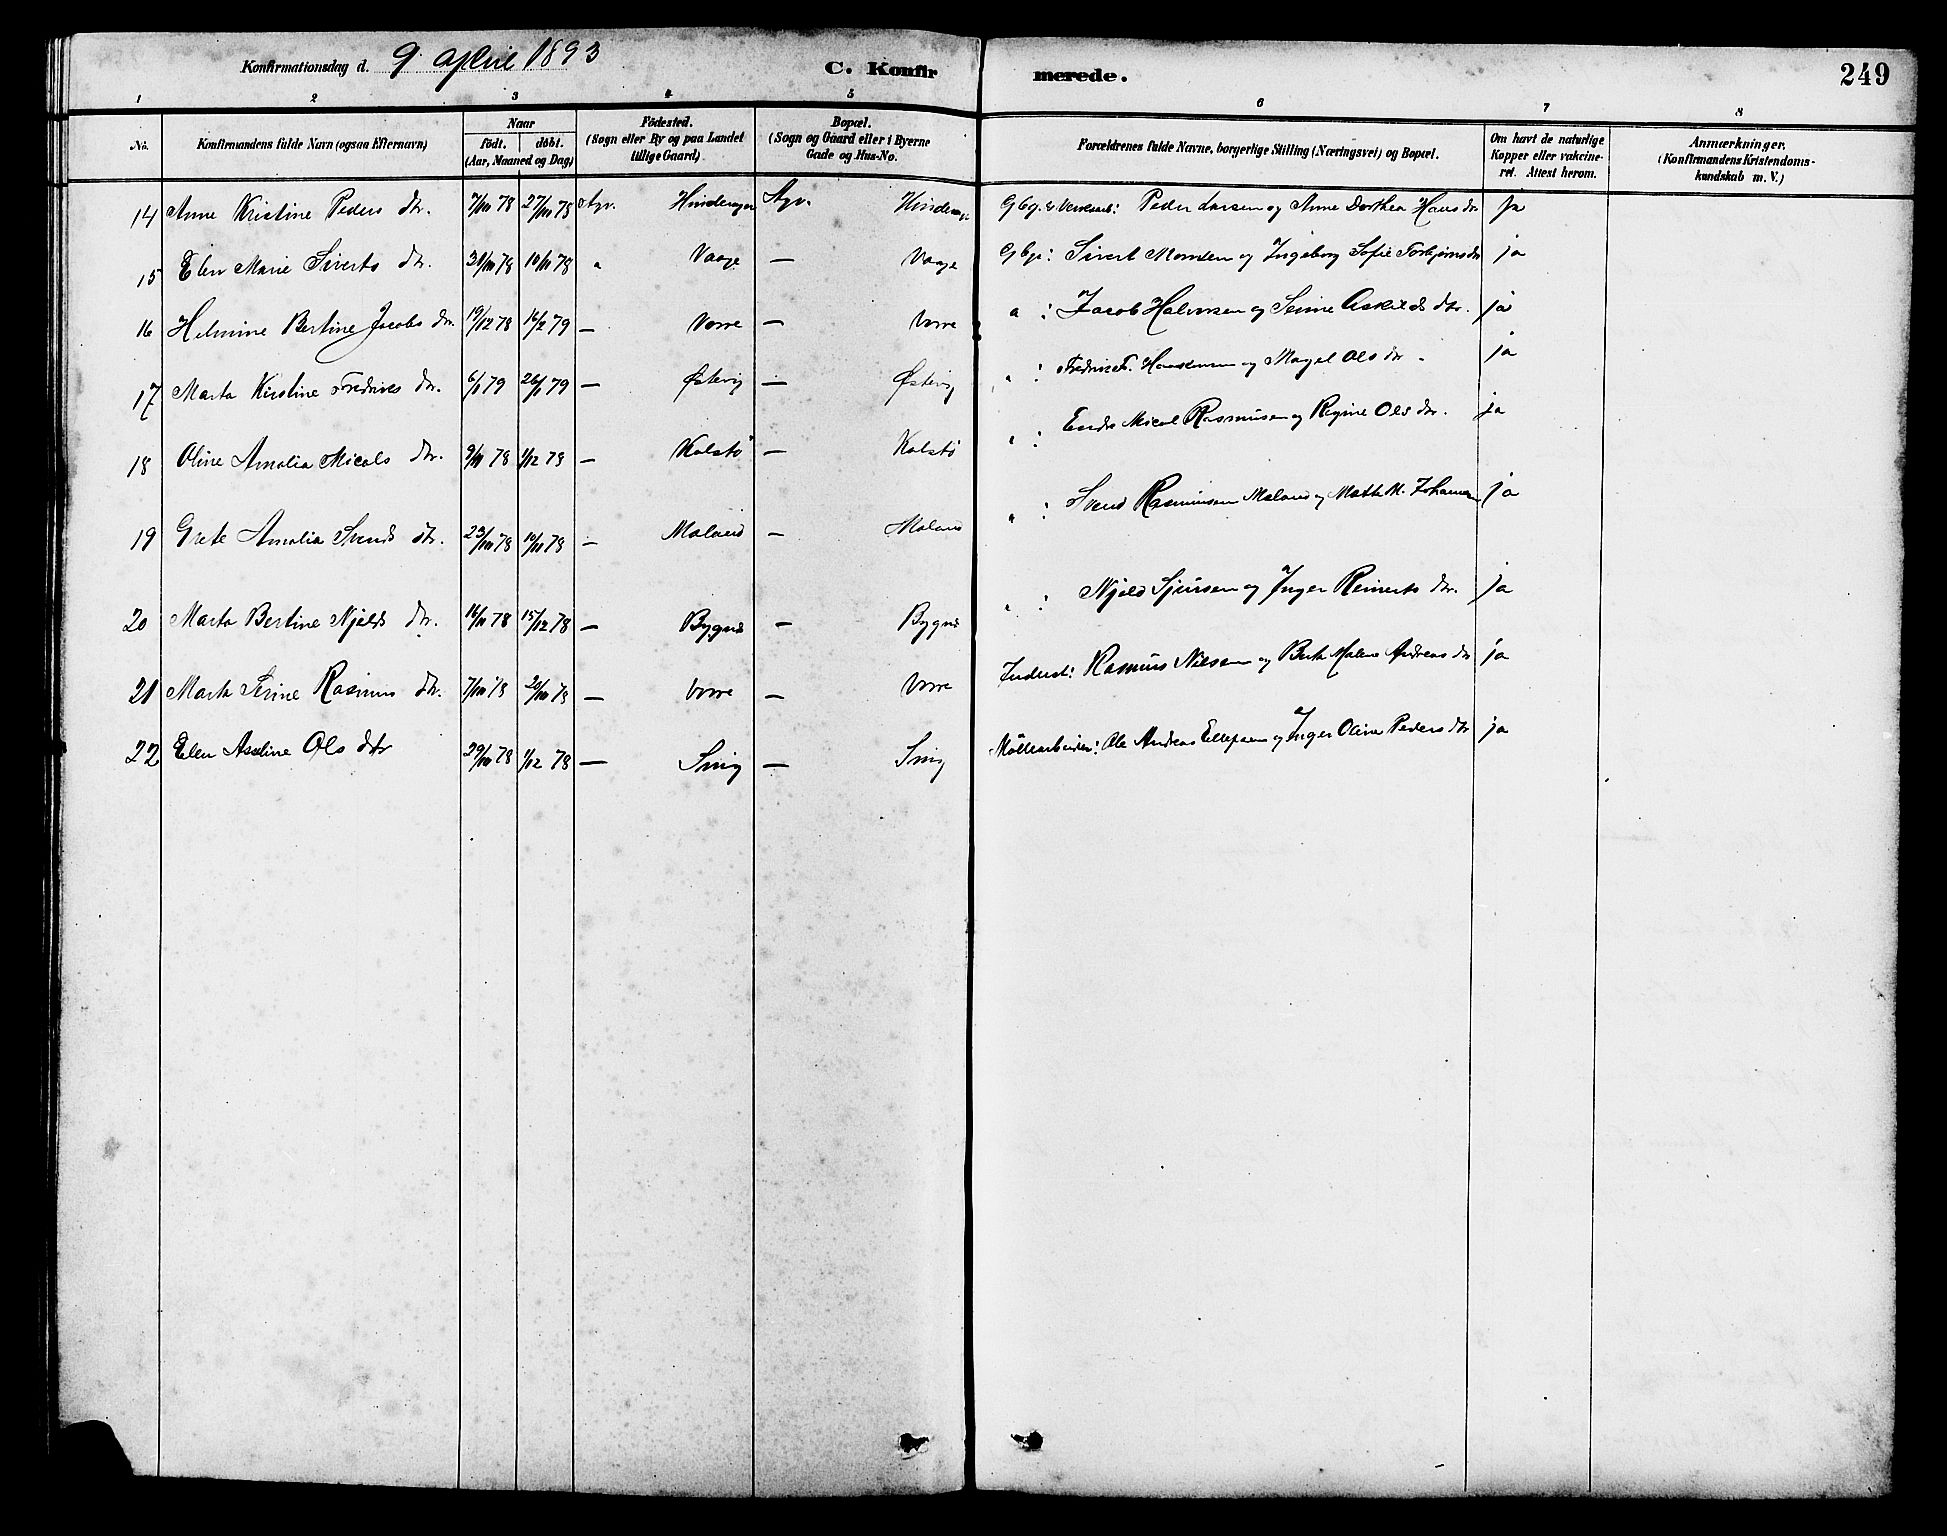 Konfirmationsdag d. 9. april 1893 C. Konfirmerede. 249
1 2 3 4 5 6 7 8
No. Konfirmandens fulde Navn (ogsaa Efternavn) Naar födt. döbt. (Aar, Maaned og Dag) Födested. (Sogn eller By og paa Landet tillige Gaard) Bopæl. (Sogn og Gaard eller i Byerne Gade og Hus-No. Forældrenes fulde Navne, borgerlige Stilling (Næringsvei) og Bopæl. Om havt de naturlige Kopper eller vakcineret. Attest herom. Anmærkninger. (Konfirmandens Kristendomskundskab m. V.)
14 Anne Kristine Peders dtr. 7/10 78 27/10 78 Agv. Agv. Peder Larsen og Anne Dorthea Hans dtr ja
15 Elen Marie Siverts dtr. 31/10 78 10/11 78 " Vaage — Vaage Gbr: Sivert Monsen og Ingeborg Sofie Torbjørns dtr ja
16 Helmine Bertine Jacobs dtr. 19/12 78 16/2 79 — Vorre — Vorre " : Jacob Halvorsen og Serine Askilds dtr. ja
17 Marta Kirstine Fredriks dtr. 6/1 79 26/1 79 — Østevig — Østevig " : og Magel Ols dtr. ja
18 Oline Amalia Micals dtr. 9/11 78 1/12 78 — Kolstö — Kolstö " : Endre Mical Rasmusen og Regine Ols dtr. ja
19 Grete Amalia Svends dtr. 23/10 78 10/11 78 — Maland — Maland " : Svend Rasmussen Maland og Marthe M. Johannes ja
20 Marta Bertine Njelds dtr. 16/11 78 15/12 78 — Bygnes — Bygnes " : Njeld Sjursen og Inger Reinerts dtr. ja
21 Marta Serine Rasmus dtr. 7/10 78 20/10 78 — Vorre — Vorre Inderst: Rasmus Nilsen og Berta Malene Andreas dtr ja
22 Elen Asseline Ols dtr 29/10 78 1/12 78 — — Möllearbeider: Ole Andreas Ellefsen og Inger Oline Peders dtr ja